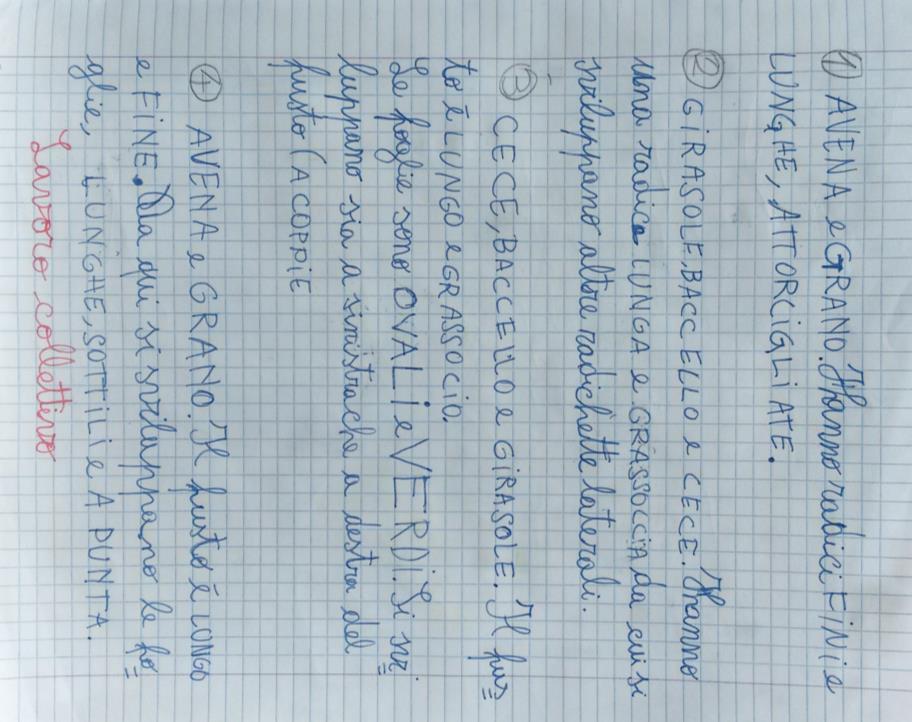 ① AVENA e GRANO. Hanno radici FINI e
LUNGHE, ATTORCIGLIATE.
② GIRASOLE, BACCELLO e CECE. Hanno
una radice LUNGA e GRASSOCCIA da cui si
sviluppano altre radichette laterali.
③ CECE, BACCELLO e GIRASOLE. Il fus
to è LUNGO e GRASSOCIO.
Le foglie sono OVALI e VERDI. Si svi
luppano sia a sinistra che a destra del
fusto (A COPPIE
④ AVENA e GRANO. Il fusto è LUNGO
e FINE. Da qui si sviluppano le fo
glie, LUNGHE, SOTTILI e A PUNTA.
Lavoro collettivo